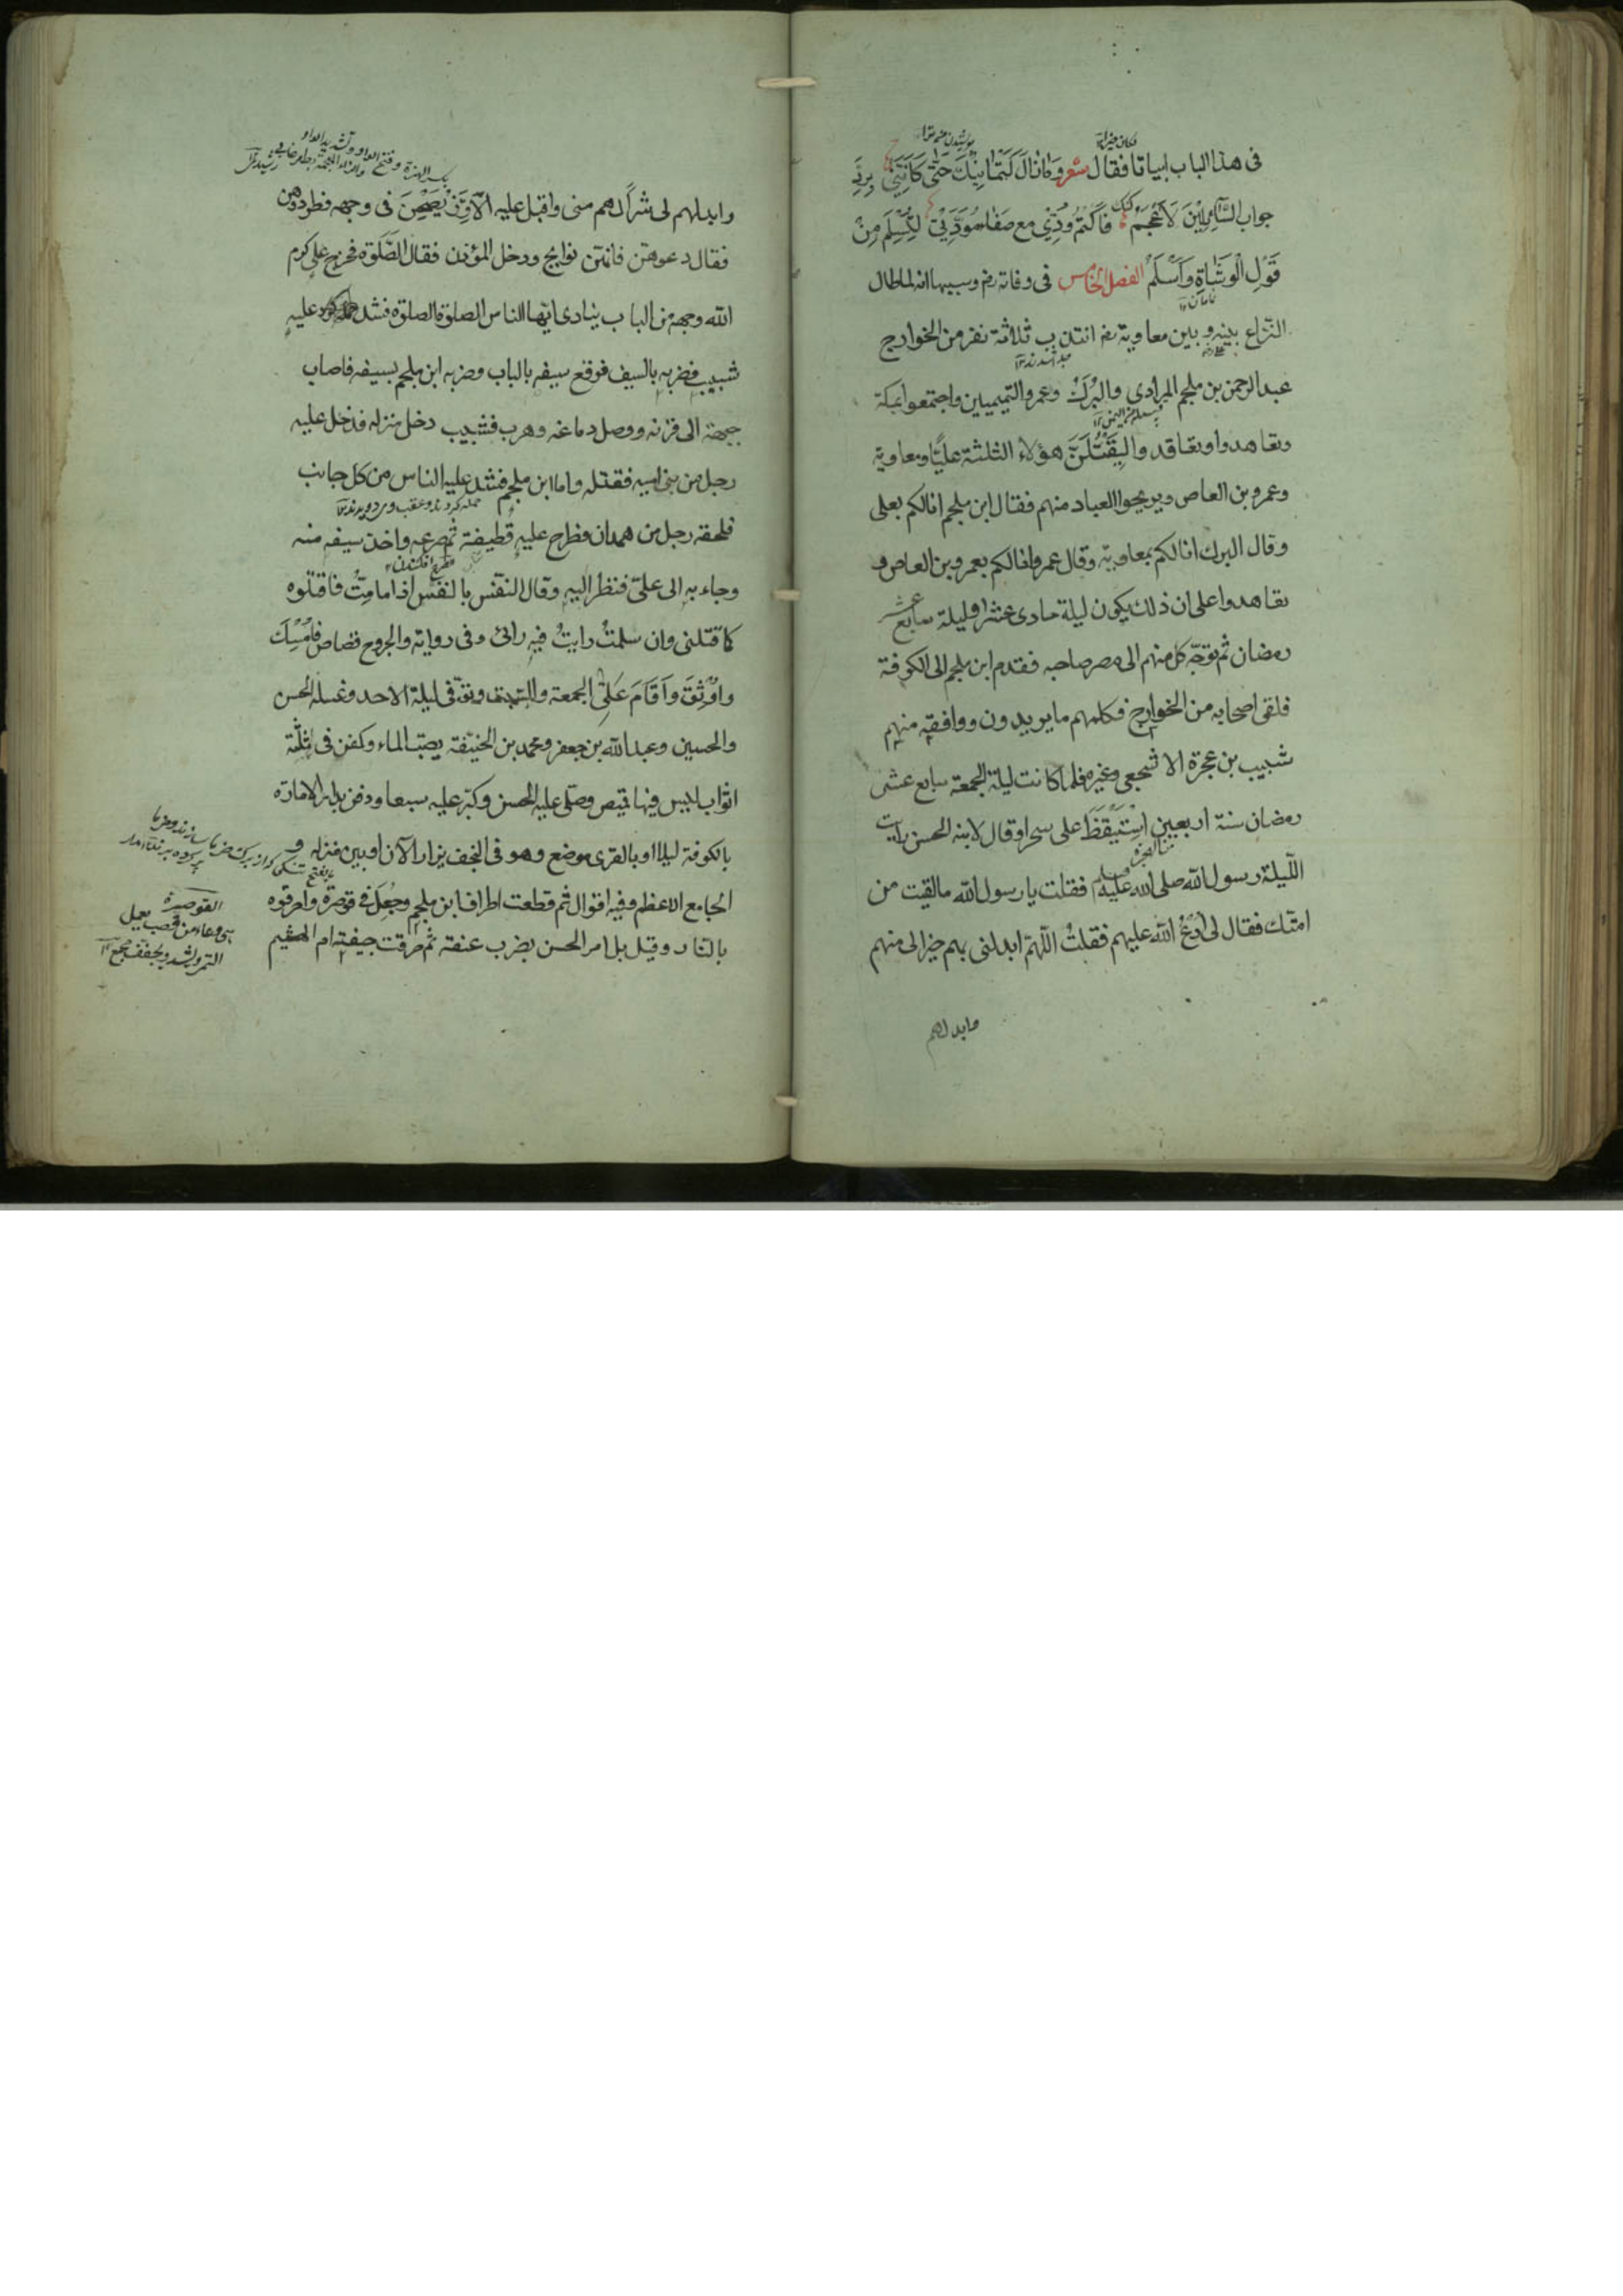 فى هذا الباب ابياتا فقال شعر وما زال كتمانيك حتى كاننى برد
جواب السائلين لاعجم فاكتم ودى مع صفا مودتى لتسلم من
قول الوشاة واسلم الفصل الخامس فى وفاته رضـ وسببها انه لما طال
النزاع بينه وبين معاوية رضـ انتدب ثلاثة نفر من الخوارج
عبد الرحمن بن ملجم المرادى والبرك وعمرو التميميين واجتمعوا بمكة
وتعاهدوا وتعاقدوا ليقتلن هؤلاء الثلثة عليًا ومعاوية
وعمرو بن العاص ويريحوا العباد منهم فقال ابن ملجم انا لكم بعلى
وقال البرك انا لكم بمعاوية وقال عمرو انا لكم بعمرو بن العاص و
تعاهدوا على ان ذلك يكون ليلة حادى عشر او ليلة سابع عشر
رمضان ثم توجّه كل منهم الى مصر صاحبه فقدم ابن ملجم الى الكوفة
فلقى اصحابه من الخوارج فكلمهم ما يريدون ووافقه منهم
شبيب بن عجرة الاشجعى وغيره فلما كانت ليلة الجمعة سابع عشر
رمضان سنة اربعين استيقظ على سحرا وقال لابنه الحسن رايت
الليلة رسول الله صلى الله عليه وسلم فقلت يا رسول الله ما لقيت من
امتك فقال لى ادع الله عليهم فقلت اللهم ابدلنى بهم خيرا لى منهم
وابدلهم
وابدلهم لى شرا لهم منى واقبل عليه الاوز يصحن فى وجهه فطردوهن
فقال دعوهن فانهن نوايح ودخل المؤذن فقال الصلوة فخرج على كرم
الله وجهه من الباب ينادى ايها الناس الصلوة الصلوة فشد عليه
شبيب فضربه بالسيف فوقع سيفه بالباب وضربه ابن ملجم بسيفه فاصاب
جبهته الى قرنه ووصل دماغه وهرب فشبيب دخل منزله فدخل عليه
رجل من بنى اميه فقتله واما ابن ملجم فشد عليه الناس من كل جانب
فلحقه رجل من همدان فطرح عليه قطيفة ثم صرعه واخذ سيفه منه
وجاء به الى على فنظر اليه وقال النفس بالنفس اذا ما مت فاقتلوه
كما قتلنى وان سلمت رايت فيه رائى وفى رواية والجروح قصاص فامسك
واوثق واقام على الجمعة والسبت وتوفى ليلة الاحد وغسله الحسن
والحسين وعبد الله بن جعفر ومحمد بن الحنيفة يصب الماء وكفن فى ثلثة
اثواب ليس فيها قميص وصلى عليه الحسن وكبر عليه سبعا ودفن بدار الامارة
بالكوفة ليلا او بالغرى موضع وهو فى النجف يزار الآن او بين منزله و
الجامع الاعظم وفيه اقوال ثم قطعت اطراف ابن ملجم وجعل فى قوصرة واحرقوه
بالنار وقيل بل امر الحسن بضرب عنقه ثم حرقت جيفته ام الهشيم
القوصرة
هى وعاء من قصب يعمل
التمر ويشدد ويخفف مجمع